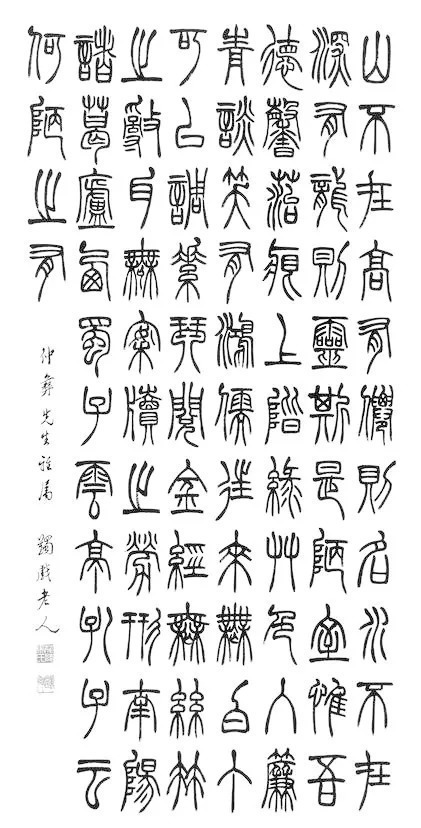 山不在高有僊則名水不在
深有龍則靈斯是陋室惟吾
德馨菭痕上階綠艸色入簾
青談笑有鴻儒往來無白丁
可以調素琴閱金經無絲竹
之亂耳無案牘之勞形南陽
諸葛廬西蜀子雲亭孔子云
何陋之有
沖彝先生雅屬 蠲戲老人